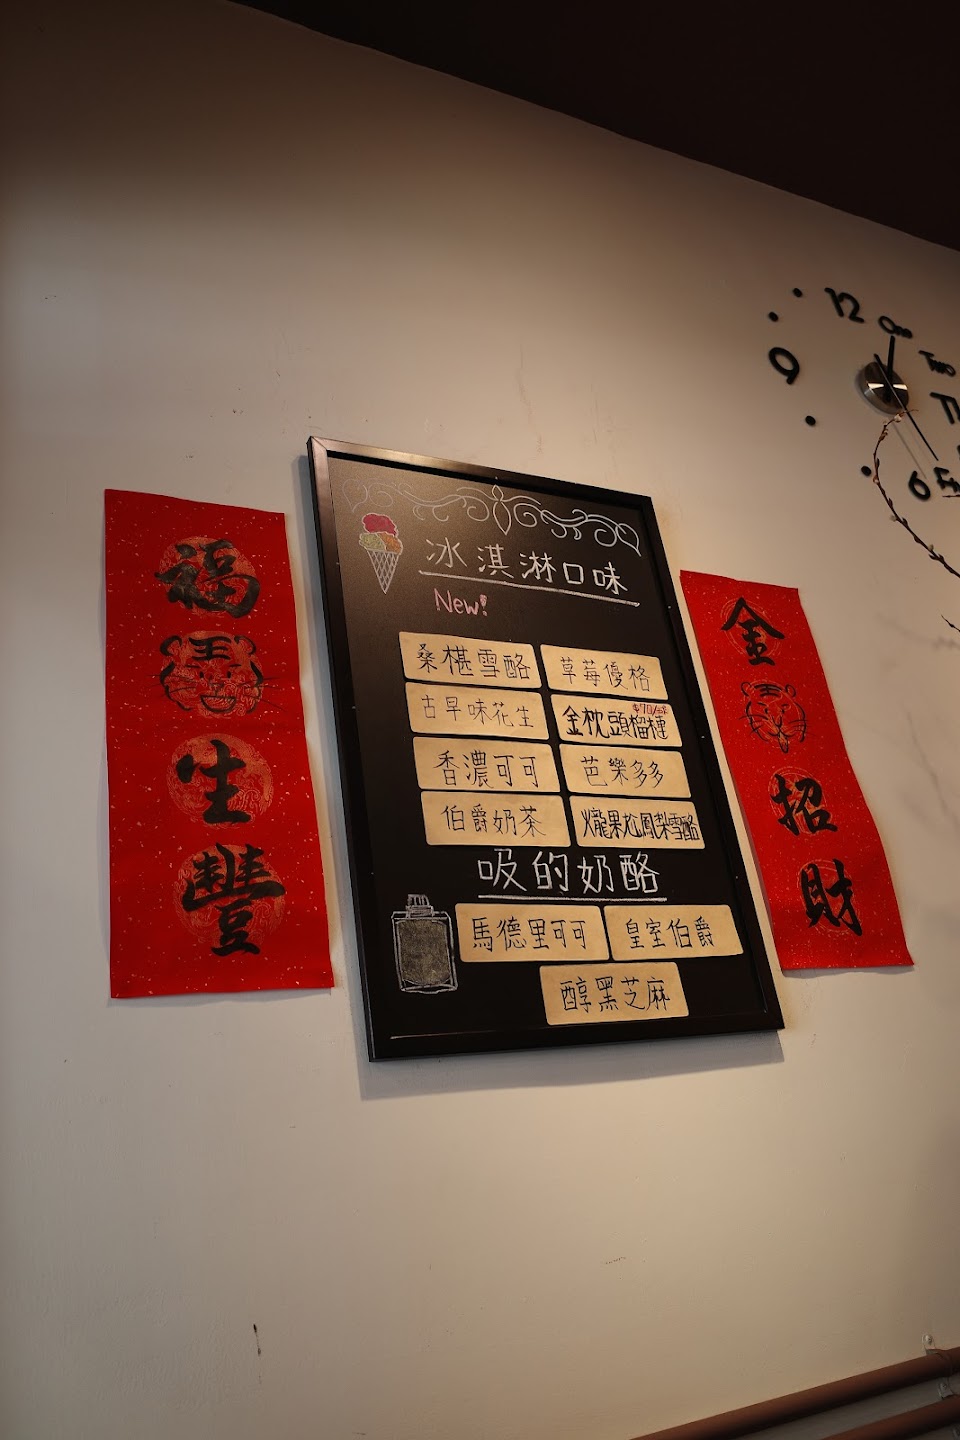 福
生
豐
冰淇淋口味
New!
桑椹雪酪
草莓優格
古早味花生
金枕頭榴槤
香濃可可
芭樂多多
伯爵奶茶
吸的奶酪
馬德里可可
皇室伯爵
醇黑芝麻
金
招
財
12
One
Two
9
6